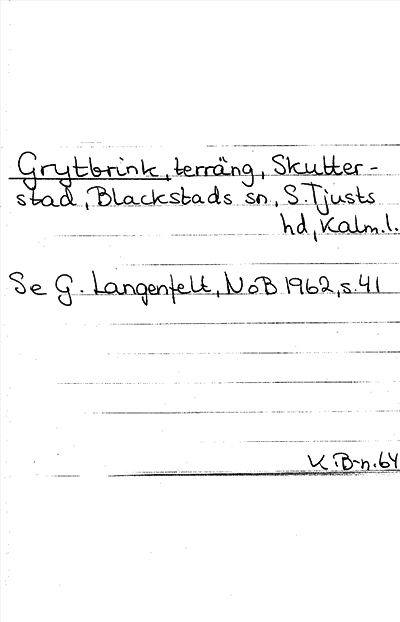 Grytbrink, terräng, Skutter-
stad, Blackstads sn, S. Tjusts
hd, Kalm. l.
Se G. Langenfelt, NoB 1962, s. 41
K. B-n. 64